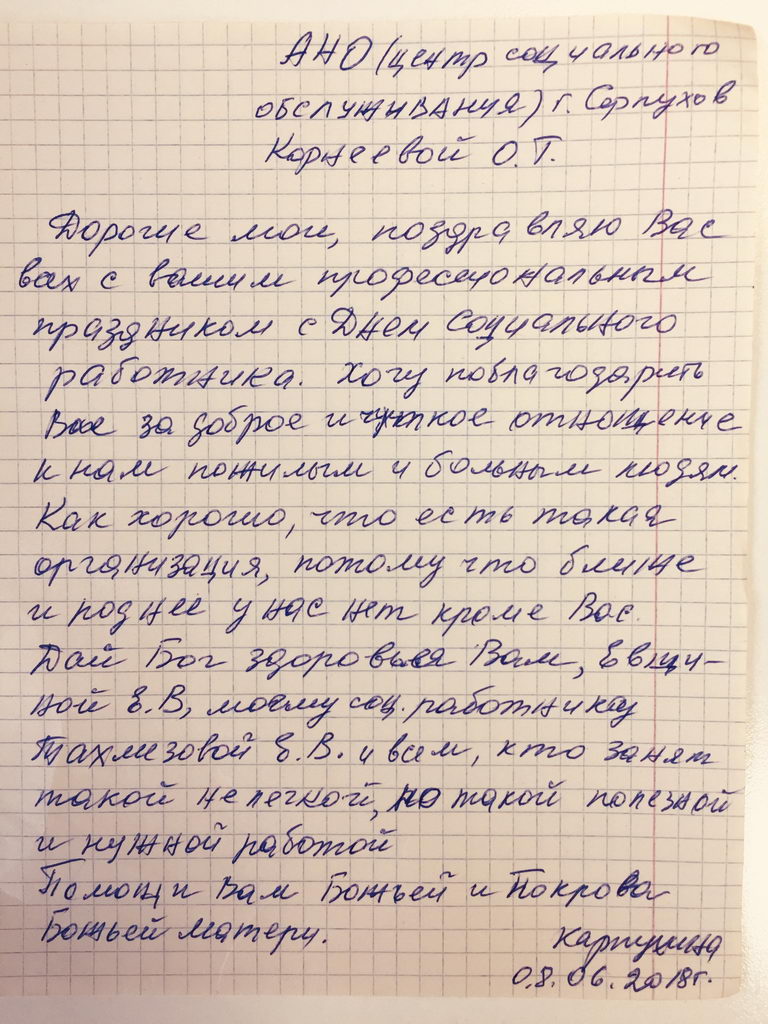 АНО (центр социального
обслуживания) г. Серпухов
Корнеевой О.Т.
Дорогие мои, поздравляю Вас
всех с вашим профессиональным
праздником с Днем социального
работника. Хочу поблагодарить
Вас за доброе и чуткое отношение
к нам пожилым и больным людям.
Как хорошо, что есть такая
организация, потому что ближе
и роднее у нас нет кроме Вас.
Дай Бог здоровья Вам,
Е.В, моему соц. работнику
Е.В. и всем, кто занят
такой нелегкой, но такой полезной
и нужной работой
Помощи Вам Божьей и Покрова
Божьей матери.
Карпухина
08.06.2018г.